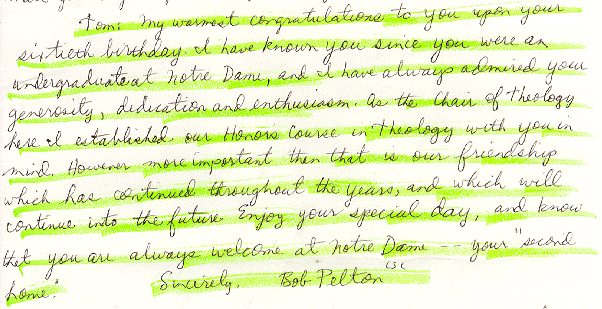 Tom: My warmest congratulations to you upon your
sixtieth birthday. I have known you since you were an
undergraduate at Notre Dame, and I have always admired your
generosity, dedication and enthusiasm. As the Chair of Theology
here I established our Honors Course in Theology with you in
mind. However more important then that is our friendship
which has continued throughout the years, and which will
continue into the future. Enjoy your special day, and know
that you are always welcome at Notre Dame -- your "second
home."
Sincerely, Bob Pelton CSC